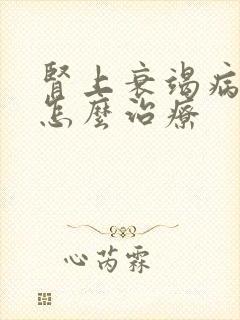 腎上衰竭病
怎麼治療
心芮霖